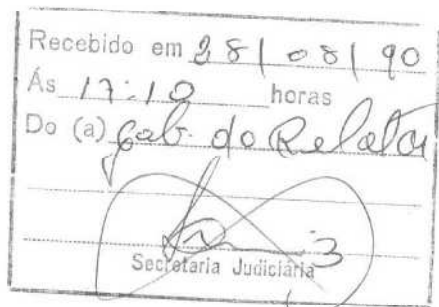 Recebido em 28/08/90
Ás 17:10 horas
Do (a) Gab. do Relator
Secretaria Judiciária